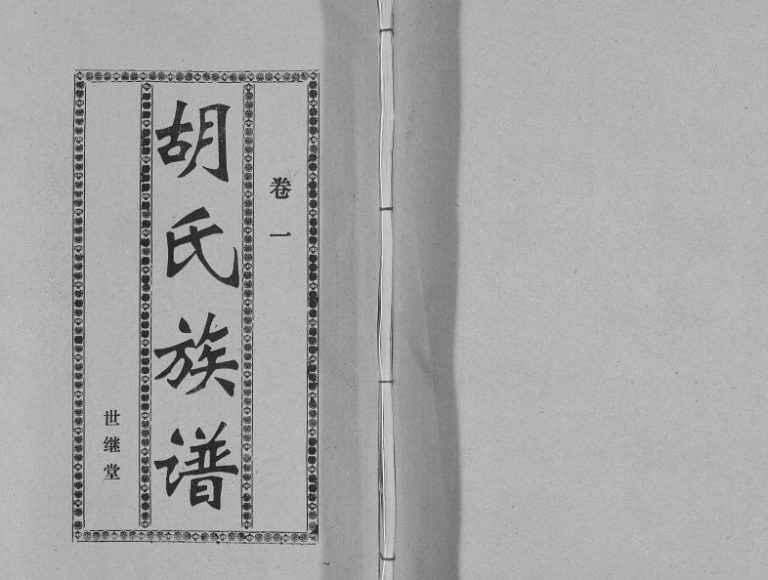 卷一
胡氏族谱
世继堂